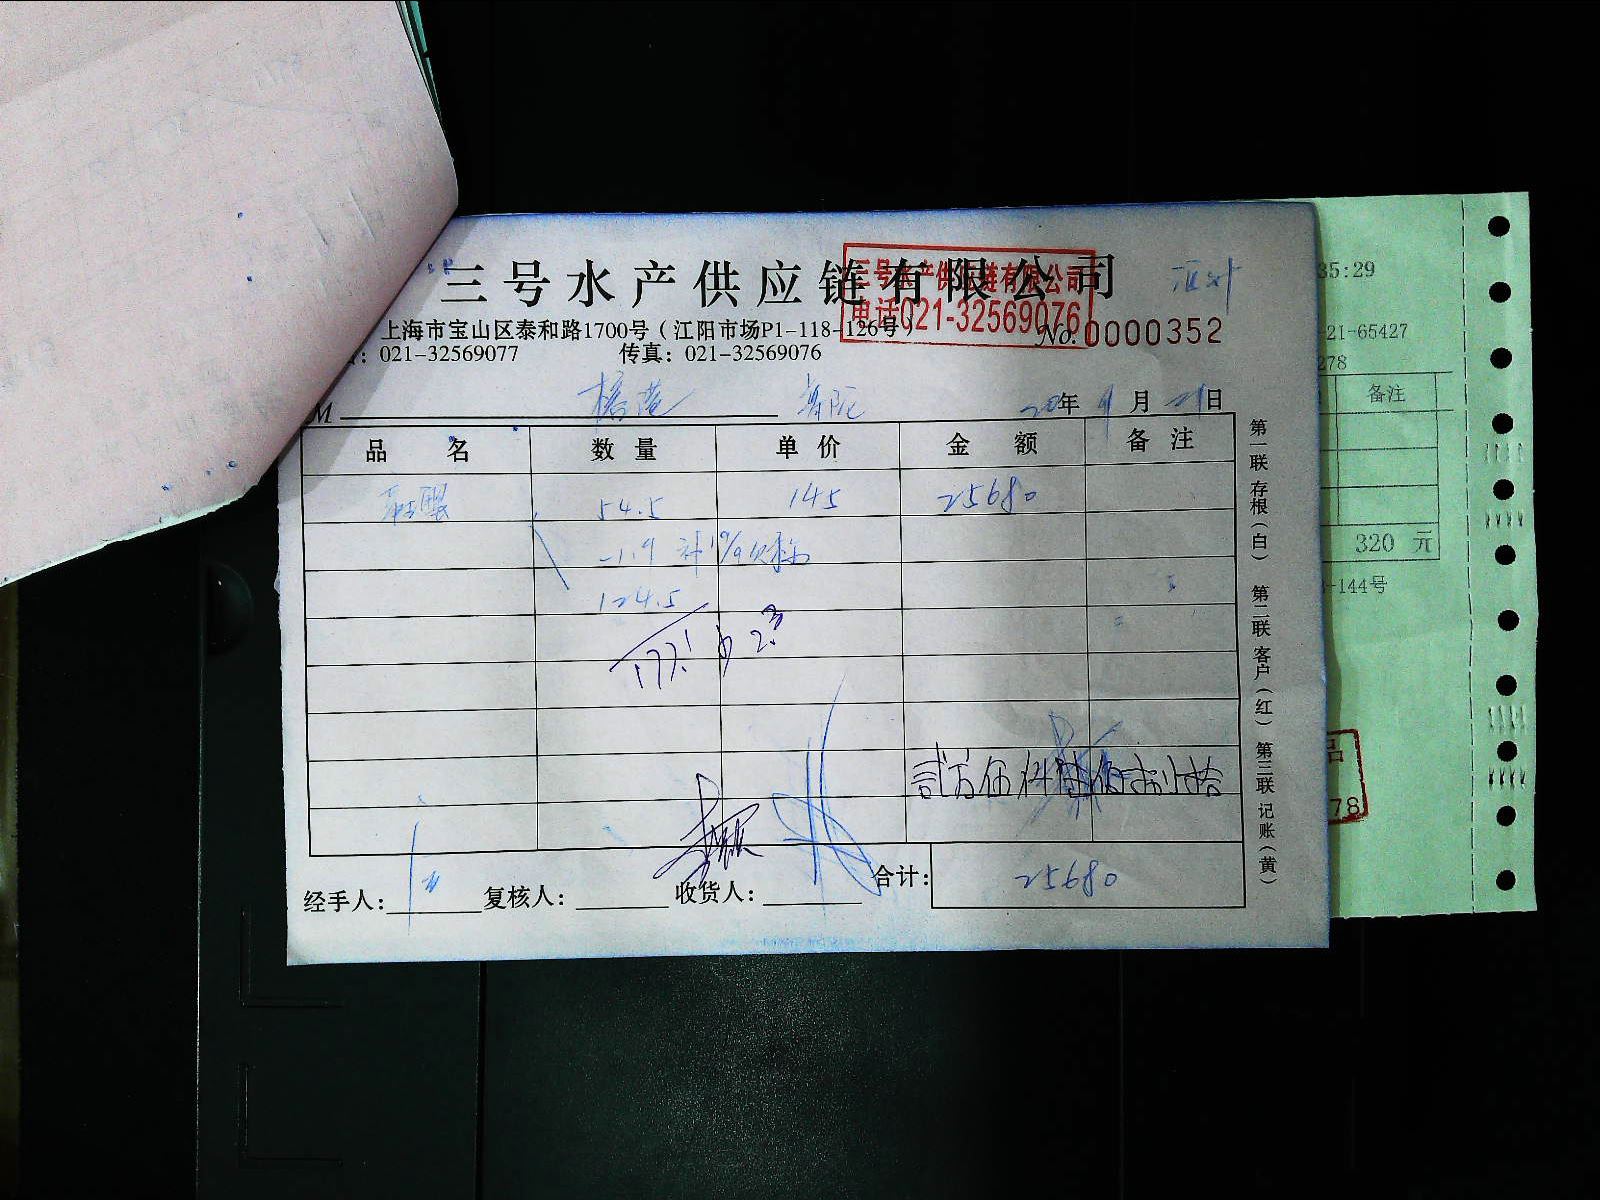 三号水产供应链有限公司
三号水产供应链有限公司
电话021-32569076
上海市宝山区泰和路1700号（江阳市场P1-118-126号）
No. 0000352
：021-32569077 传真：021-32569076
M
20年 月 21日
品名 数量 单价 金额 备注
54.5 145 25680
-1.9 补1%欠称
124.5
177.1 2.3
贰万伍仟陆佰捌拾
经手人： 复核人： 收货人： 合计： 25680
第一联 存根（白） 第二联 客户（红） 第三联 记账（黄）
35:29
21-65427
278
备注
320 元
-144号
品
78